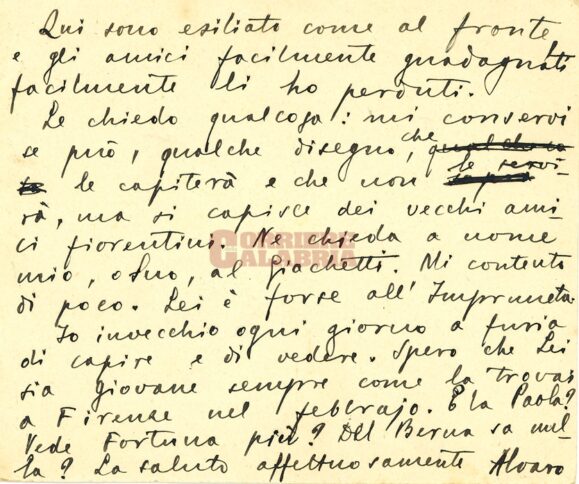 Qui sono esiliato come al fronte
e gli amici facilmente guadagnati
facilmente li ho perduti.
Le chiedo qualcosa: mi conservi
se può, qualche disegno, che
le capiterà e che non le servi-
rà, ma si capisce dei vecchi ami-
ci fiorentini. Ne chieda a nome
CORRIERE
CALABRIA
mio, o Suo, al Giachetti. Mi contento
di poco. Lei è forse all'Impruneta.
Io invecchio ogni giorno a furia
di capire e di vedere. Spero che Lei
sia giovane sempre come la trovai
a Firenze nel febbrajo. E la Paola?
Vede Fortuna più? Del Berna sa nul-
la? La saluto affettuosamente Alvaro